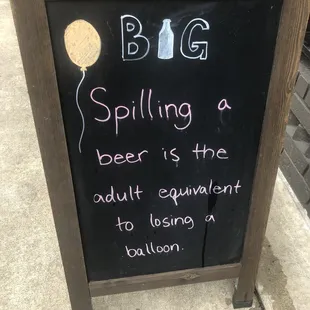 BIG
Spilling a
beer is the
adult equivalent
to losing a
balloon.